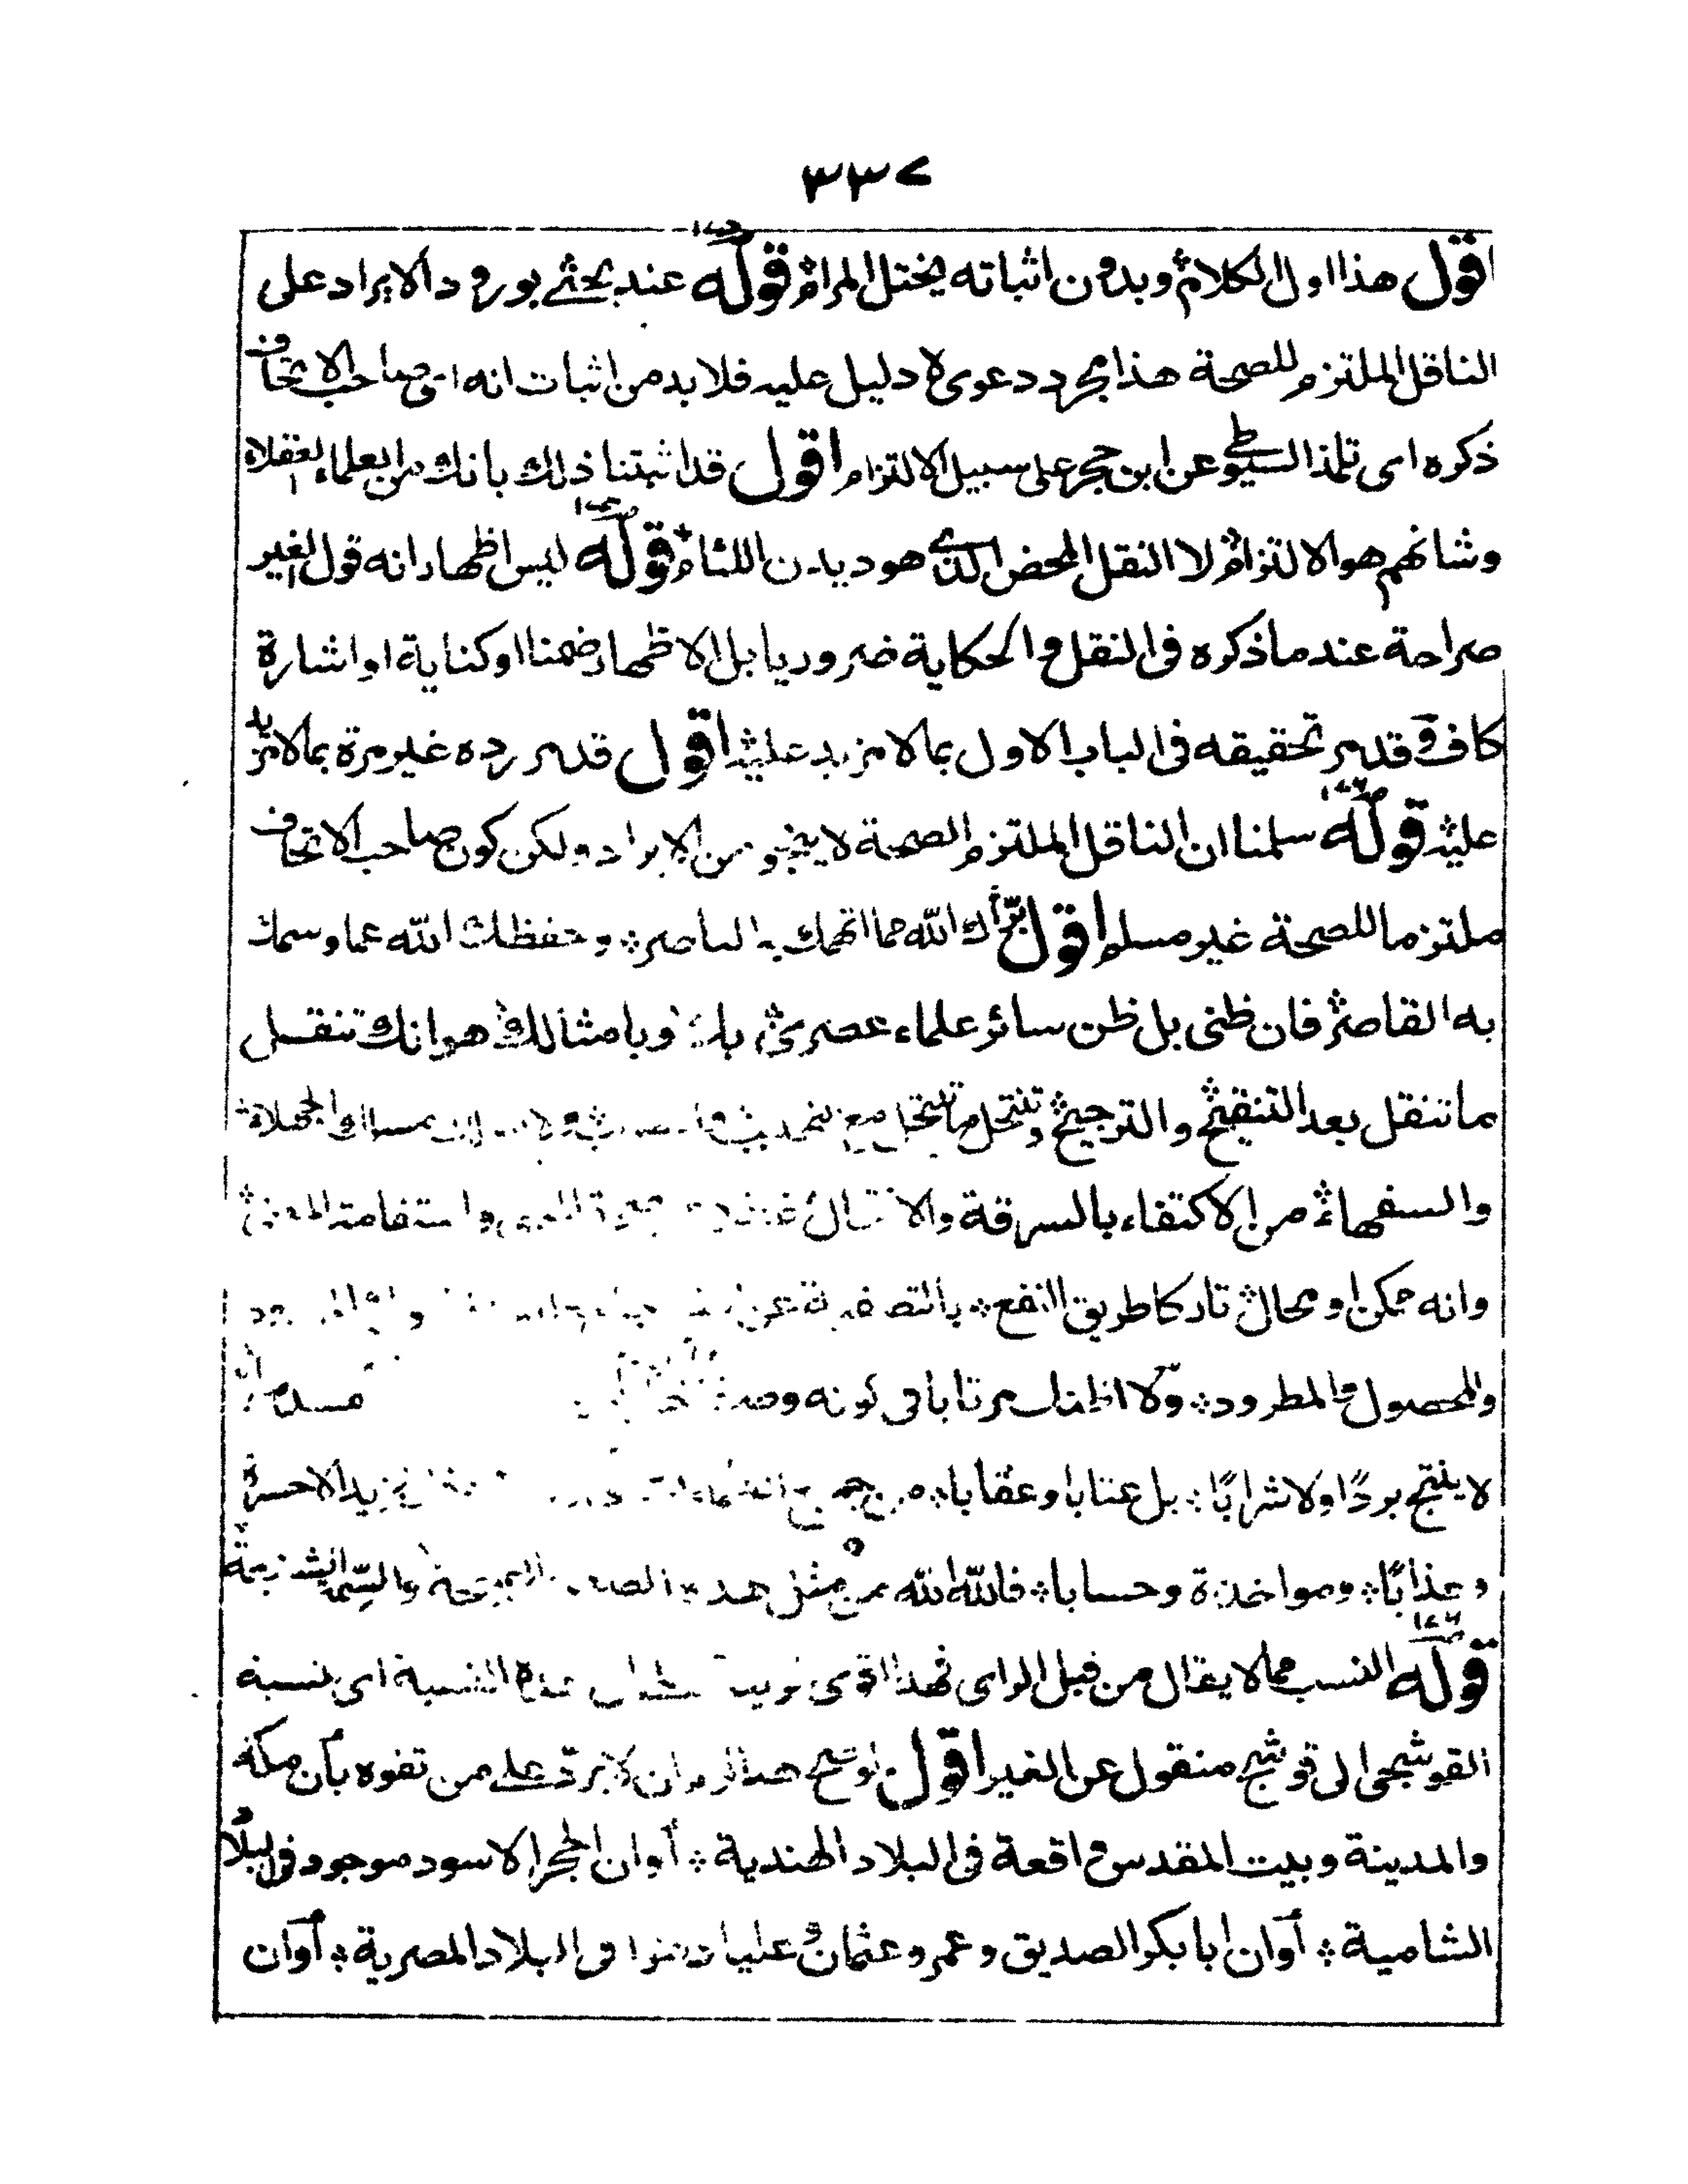 ٣٣٧
اقول هذا اول الكلام وبدون اثباته يختل المرام قوله عند بحثي بورود الايراد على
الناقل الملتزم للصحة هذا مجرد دعوى لا دليل عليه فلا بد من اثبات انه اى صاحب الاتحاف
ذكره اى تلمذ السيوطي عن ابن حجر على سبيل الالتزام اقول قد اثبتنا ذلك بانك من العلماء العقلاء
وشانهم هو الالتزام لا النقل المحض الذي هو ديدن اللئام قوله ليس اظهار انه قول الغير
صراحة عند ما ذكره فى النقل والحكاية ضروريا بل الاظهار ضمنا او كناية او اشارة
كاف وقد مر تحقيقه فى الباب الاول بما لا مزيد عليه اقول قد مر رده غير مرة بما لا مزيد
عليه قوله سلمنا ان الناقل الملتزم الصحة لا ينجو من الايراد ولكن كون صاحب الاتحاف
ملتزما للصحة غير مسلم اقول برّأك الله مما اتهمك به الناصر وحفظك الله عما وسمك
به القاصر فان ظنى بل ظن سائر علماء عصرى بك وبامثالك هو انك تنقل
ما تنقل بعد التنقيح والترجيح وتنتحل ما تنتحل مع
والسفهاء من الاكتفاء بالسرقة والانتحال واستقامة
وانه ممكن او محال تاركا طريق النفع
والمحصول والمطرود ولا اظنك مرتابا فى كونه
لا ينتج بردًا ولا شرابًا بل عتابا وعقابا من جميع يزيد الا حسرة
وعذابًا ومواخذة وحسابا فالله الله من مثل هذه الشنيعة
قوله النسب مما لا يقال من قبل الراى فهذا اقوى هذه النسبة اى نسبة
القوشجى الى قوشج منقول عن الغير اقول توضيح هذا المرام ان لا يردّ على من تفوه بأن مكة
والمدينة وبيت المقدس واقعة فى البلاد الهندية أوان الحجر الاسود موجود فى البلاد
الشامية أوان ابا بكر الصديق وعمر وعثمان وعليا دفنوا فى البلاد المصرية أوان